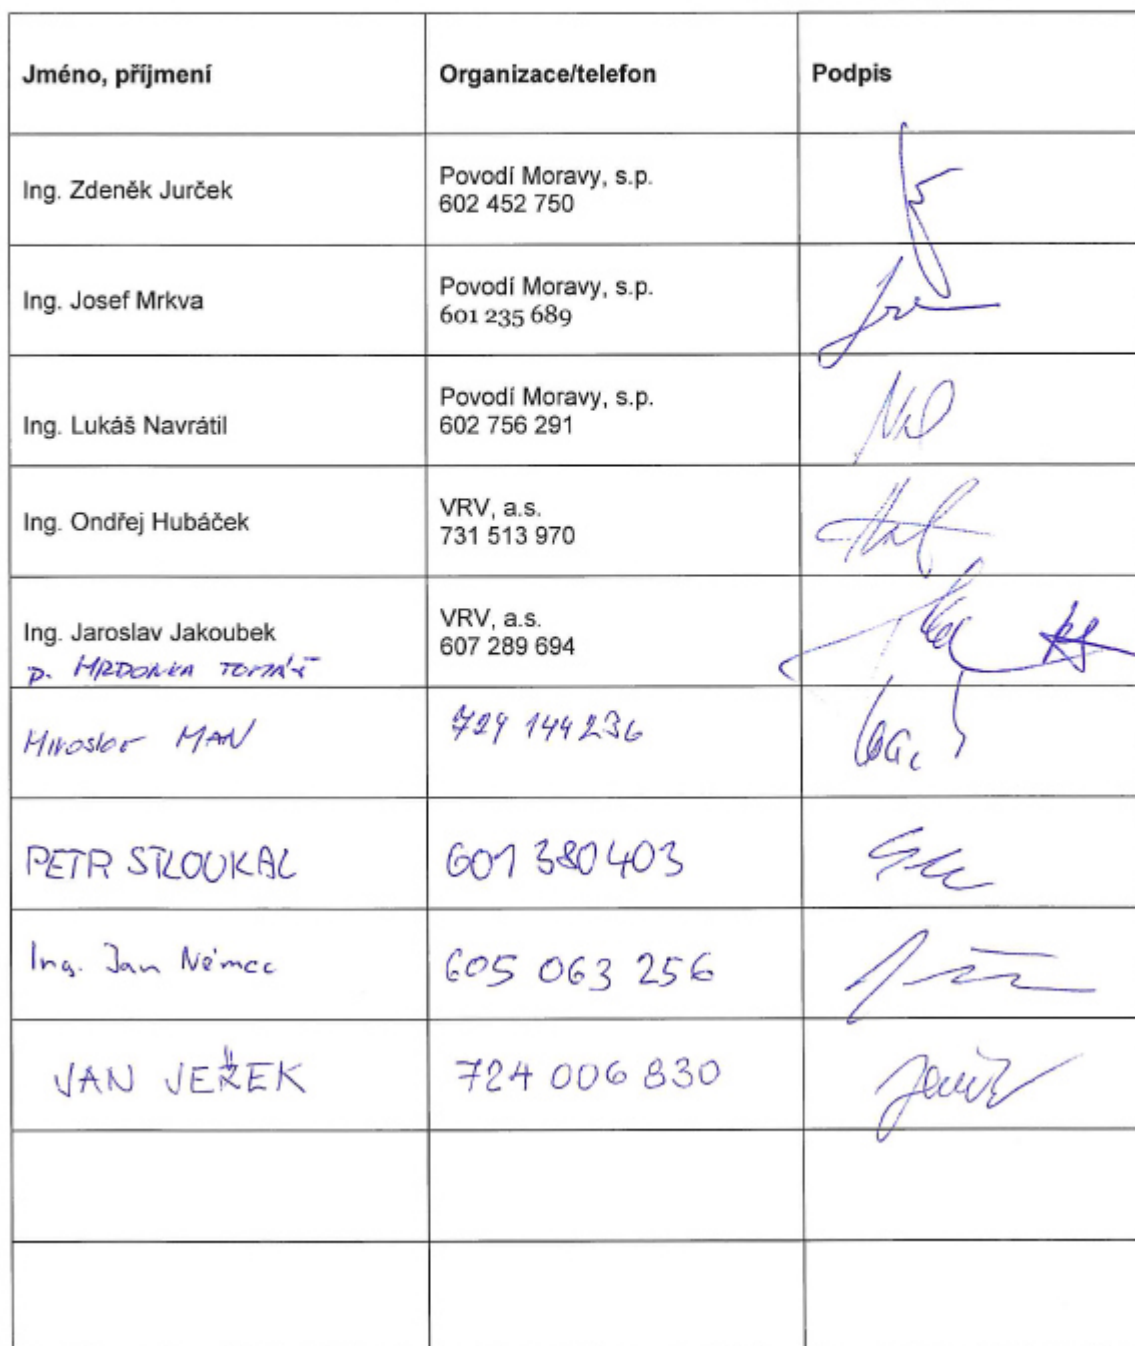 Jméno, příjmení
Organizace/telefon
Podpis
Ing. Zdeněk Jurček
Povodí Moravy, s.p.
602 452 750
Ing. Josef Mrkva
Povodí Moravy, s.p.
601 235 689
Ing. Lukáš Navrátil
Povodí Moravy, s.p.
602 756 291
Ing. Ondřej Hubáček
VRV, a.s.
731 513 970
Ing. Jaroslav Jakoubek
VRV, a.s.
607 289 694
p. MRDONKA TOMÁŠ
Miroslav MAN
729 144 236
PETR STLOUKAL
601 380 403
Ing. Jan Němec
605 063 256
JAN JEŽEK
724 006 830